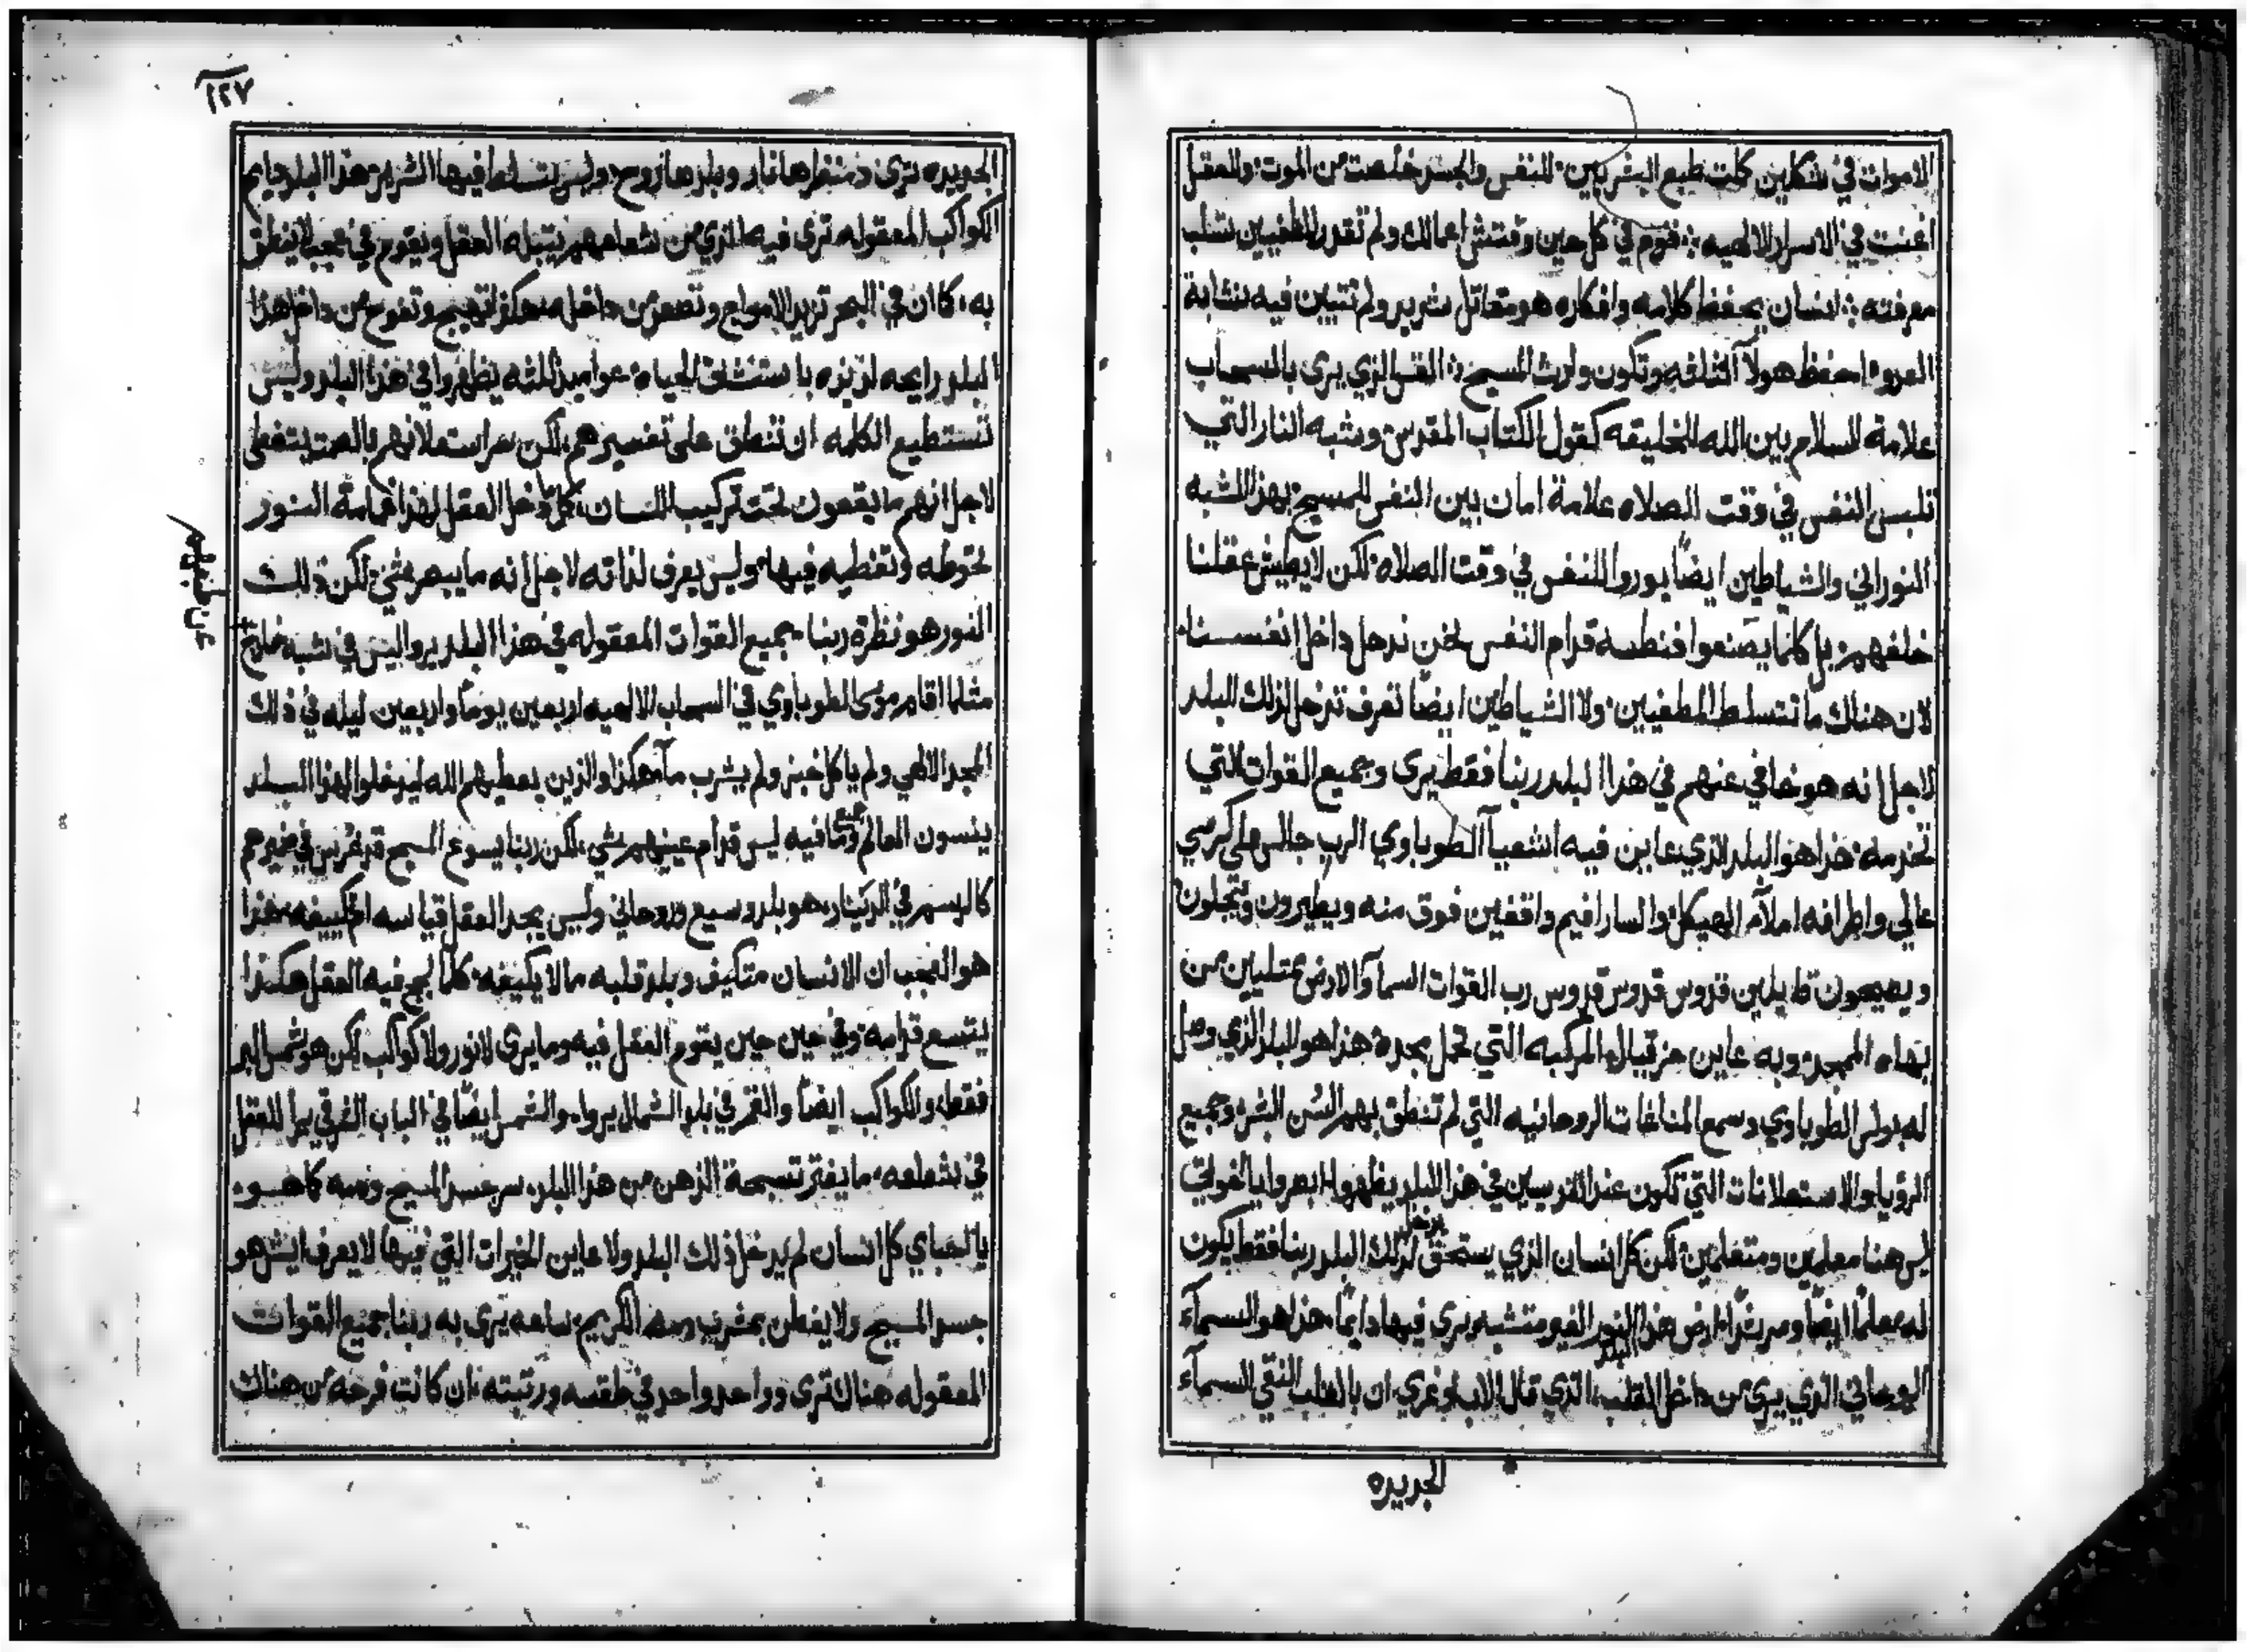 الاموات في شكلين كلت طبع البشريين للنفس والجسد خلصت من الموت والعقل
اغنت في الاسرار الالهيه فقوم في كل حين وفتش اعمالك ولم تقدر الطغيين تسلب
معرفته انسان يحفظ كلامه وافكاره هو مقاتل شرير ولم تتبين فيه
العدو احفظ هولآ وتكون وارث المسيح القس الذي يرى بالسحاب
علامة السلام بين الله للخليقه كقول الكتاب المقدس وشبه النار التي
تلبس النفس في وقت الصلاه علامة امان بين النفس للمسيح بهذا الشبه
النوراني والشياطين ايضاً يوروا للنفس في وقت الصلاه لكن لا يطيش عقلنا
خلفهم بل كلما يصنعوا فنطسه قدام النفس نحن ندخل داخل انفسنا
لان هناك ما تتسلط المطغيين ولا الشياطين ايضاً تعرف تدخل لذلك البلد
لاجل انه هو خافي عنهم في هذا البلد ربنا فقط يرى وجميع القوات التي
تخدمه هذا هو البلد الذي عاين فيه اشعيآ الطوباوي الرب جالس على كرسي
عالي واطرافه املآم الهيكل والسارافيم واقفين فوق منه ويطيرون ويتجلون
ويصيحون قايلين قدوس قدوس قدوس رب القوات السمآ والارض ممتليين من
بهاء المجد وبه عاين حزقيال المركبه التي تحمل مجده هذا هو البلد الذي وصل
له بولس الطوباوي وسمع المناغات الروحانيه التي لم تنطق بهم السن البشر وجميع
الرؤيا والاستعلانات التي تكون عند القديسين في هذا البلد يظهروا ابصروا يا اخوتي
ليس هنا معلمين ومتعلمين لكن كل انسان الذي يستحق يدخل لذلك البلد ربنا فقط يكون
له معلماً ايضاً ومرشداً ارض هذا البلد النور الغير متشبه يرى فيها دايماً هذا هو السمآء
الروحاني الذي يرى من داخل القلب الذي قال الاب اوغري ان بالقلب النقي السمآء
الجديده
١٢٧
الجديده ترى منظرها نار وبلدها نزوح وليس يتسلط فيها الشرير هذا البلد دايم
الكواكب المعقوله ترى فيه الذي من شعاعهم يتبله العقل ويقوم في عجب لا ينطق
به كما ان في البحر تزيد الامواج وتصعد من داخله هكذا تهيج وتفوح من داخل هذا
البلد رايحه لذيذه باستنشاق الحياه عواميد ثلثه يظهروا في هذا البلد وليس
تستطيع الكلمه ان تنطق على تفسيرهم لكن سر استعلانهم بالصمت يتغطى
لاجل انهم ما يقعون تحت تركيب اللسان كل داخل العقل لهذا غمامة النور
تحوطه وتغطيه فيها وليس يعرف لذاته لاجل انه ما يبصر شي لكن ذلك
النور هو نظرة ربنا جميع القوات المعقوله في هذا البلد يروا ليس في شبه خارج
عن طبعهم
مثلما اقام موسى الطوباوي في السحاب الالهيه اربعين يوماً واربعين ليله في ذلك
المجد الالهي ولم ياكل خبز ولم يشرب مآء هكذا والذين يعطيهم الله ليدخلوا لهذا البلد
ينسون العالم وجميع ما فيه ليس قدام عينيهم شي لكن ربنا يسوع المسيح قد غرس في ضميرهم
كالرسم في الدينار هو بلد وسيع وروحاني وليس يجد العقل قياسه او تكييفه هذا
هو العجب ان الانسان متكيف وبلد قلبه ما لا يكيفه كلما لجج فيه العقل هكذا
يتسع قدامه وفي حين حين يقوم العقل فيه وما يرى لا نور ولا كواكب لكن هو شمس البر
فقط والكواكب ايضاً والقمر في بلد الشمال يروا والشمس ايضاً في الباب الشرقي يرا للعقل
في شعاعه ما يفتر تسبحة الذهن من هذا البلد سر جسد المسيح ودمه كما هو
يا احباي كل انسان لم يدخل ذلك البلد ولا عاين الخيرات التي فيها لا يعرف ايش هو
جسد المسيح ولا يفطن بمشرب دمه الكريم ساعه يرى به ربنا جميع القوات
المعقوله هناك ترى وواحد واحد في طقسه ورتبته ان كانت فرحه من هناك